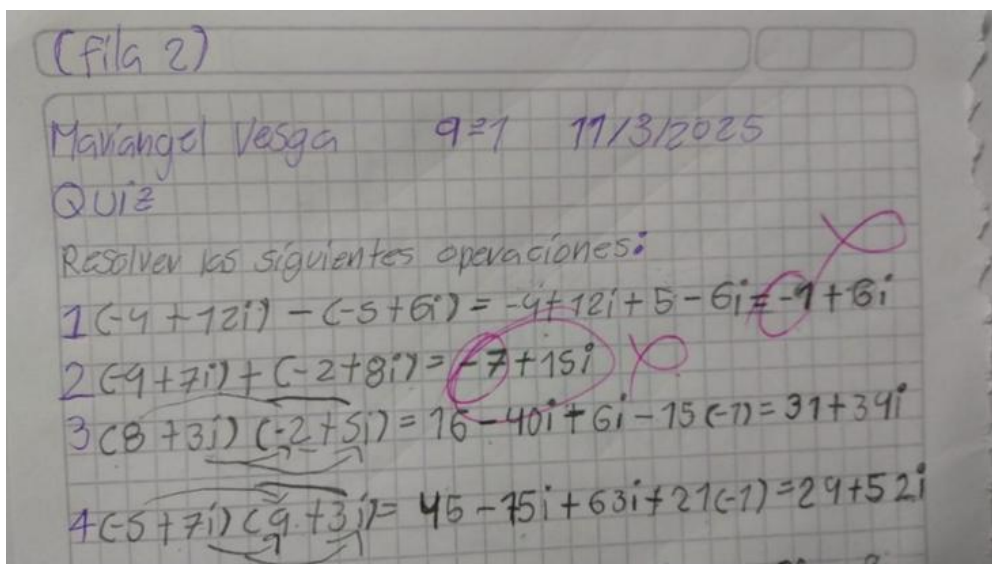 (fila 2)
Mariangel Vesga 9=1 11/3/2025
Quiz
Resolver las siguientes operaciones:
1 (-4 + 12i) - (-5 + 6i) = -4 + 12i + 5 - 6i = -1 + 6i
2 (-9 + 7i) + (-2 + 8i) = -7 + 15i
3 (8 + 3i) (-2 + 5i) = 16 - 40i + 6i - 15(-1) = 31 + 34i
4 (-5 + 7i) (9 + 3i) = 45 - 15i + 63i + 21(-1) = 24 + 52i